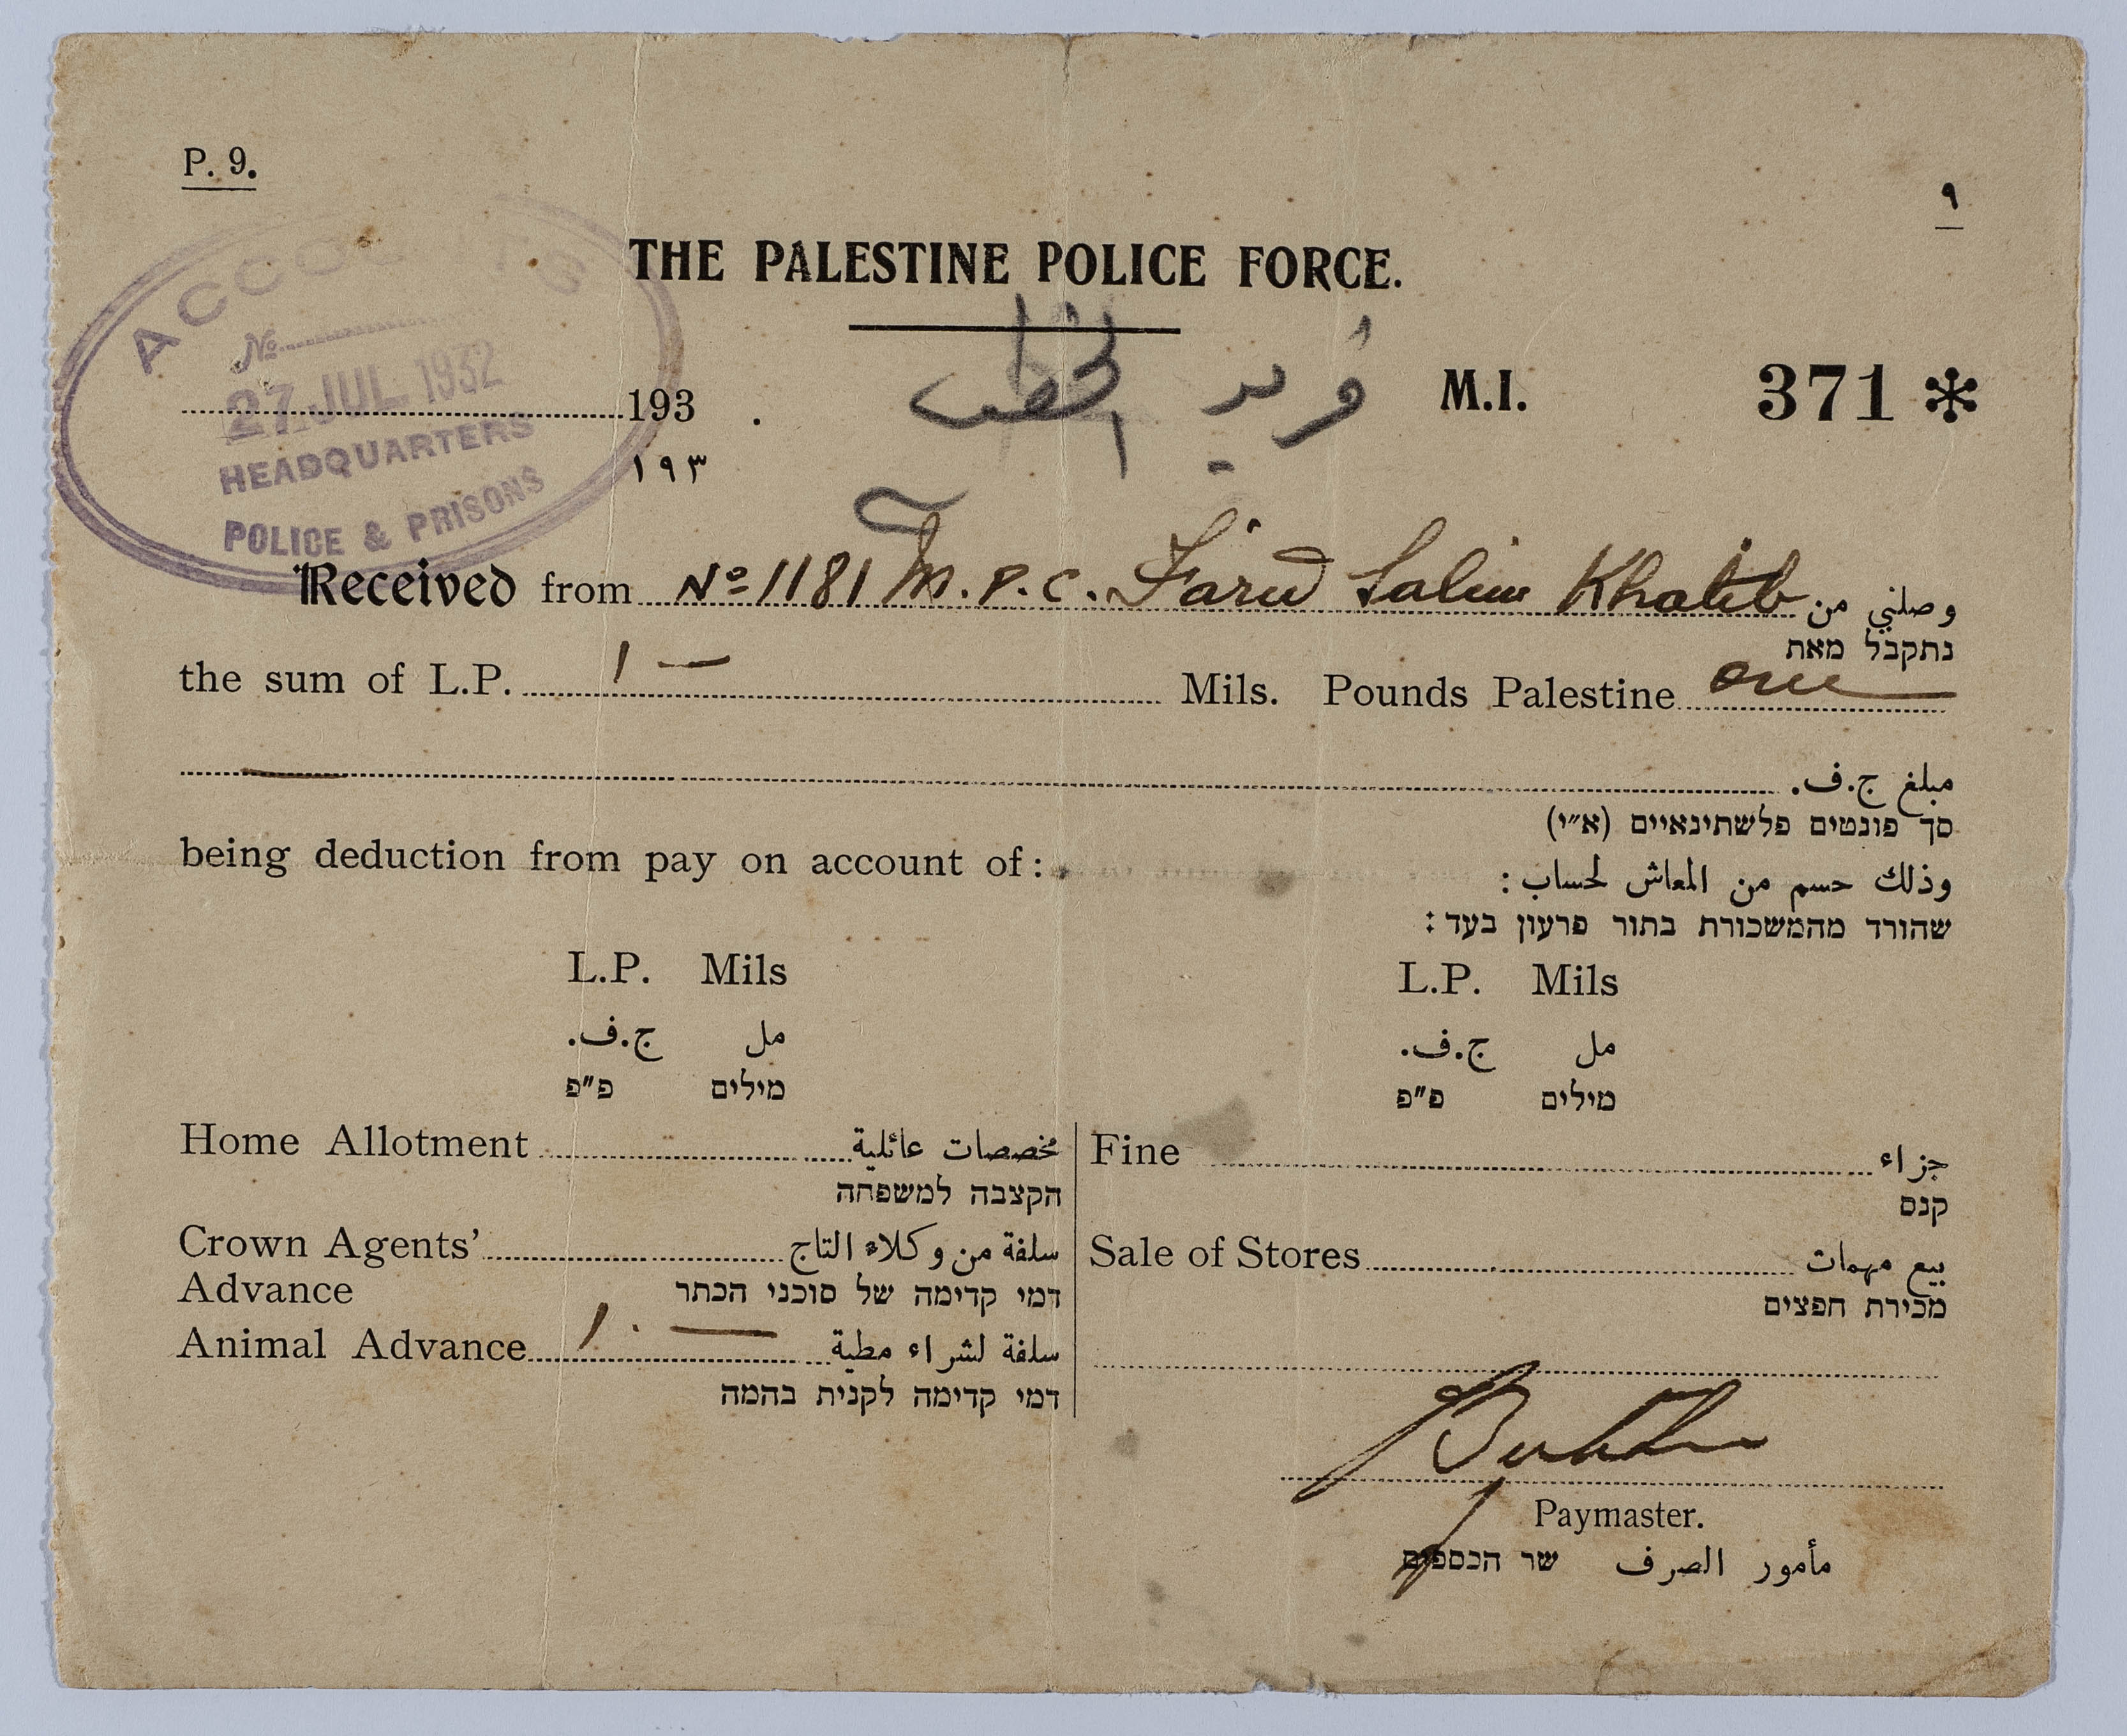 P. 9.
٩
THE PALESTINE POLICE FORCE.
ACCOUNTS
No.
27 JUL 1932
HEADQUARTERS
POLICE & PRISONS
193 .
١٩٣
فريد الخطيب
M.I. 371 *
Received from No 1181 M.P.C. Farid Salim Khatib وصلني من
נתקבל מאת
the sum of L.P. 1 — Mils. Pounds Palestine one
مبلغ ج.ف.
סך פונטים פלשתינאיים (א״י)
being deduction from pay on account of: وذلك حسم من المعاش لحساب :
שהורד מהמשכורת בתור פרעון בעד :
L.P. Mils
ج.ف. مل
פ״פ מילים
L.P. Mils
ج.ف. مل
פ״פ מילים
Home Allotment مخصصات عائلية
הקצבה למשפחה
Crown Agents' سلفة من وكلاء التاج
Advance דמי קדימה של סוכני הכתר
Animal Advance 1. — سلفة لشراء مطية
דמי קדימה לקנית בהמה
Fine جزاء
קנס
Sale of Stores بيع مهمات
מכירת חפצים
Paymaster.
مأمور الصرف שר הכספים